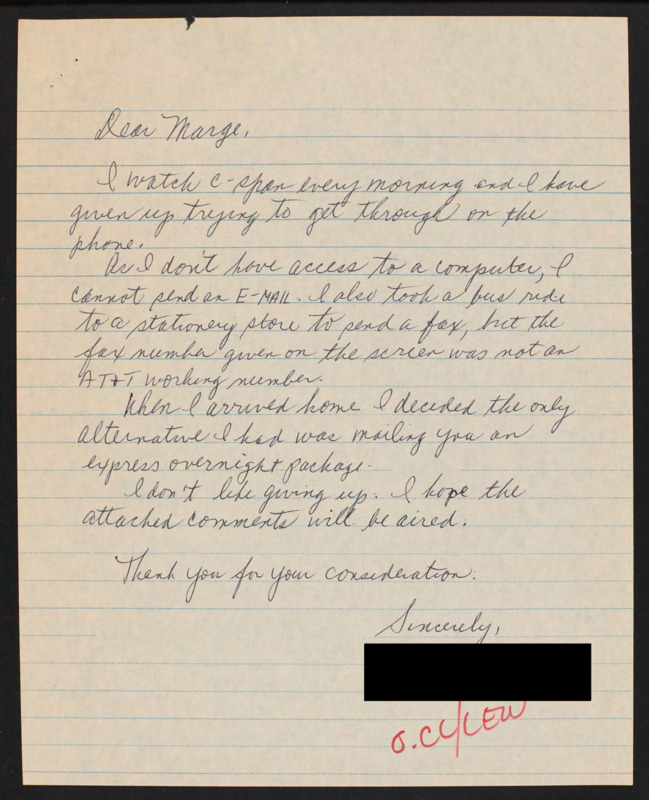 Dear Marge,
I watch C-span every morning and I have
given up trying to get through on the
phone.
As I don't have access to a computer, I
cannot send an E-MAIL. I also took a bus ride
to a stationery store to send a fax, but the
fax number given on the screen was not an
AT&T working number.
When I arrived home I decided the only
alternative I had was mailing you an
express overnight package.
I don't like giving up. I hope the
attached comments will be aired.
Thank you for your consideration.
Sincerely,